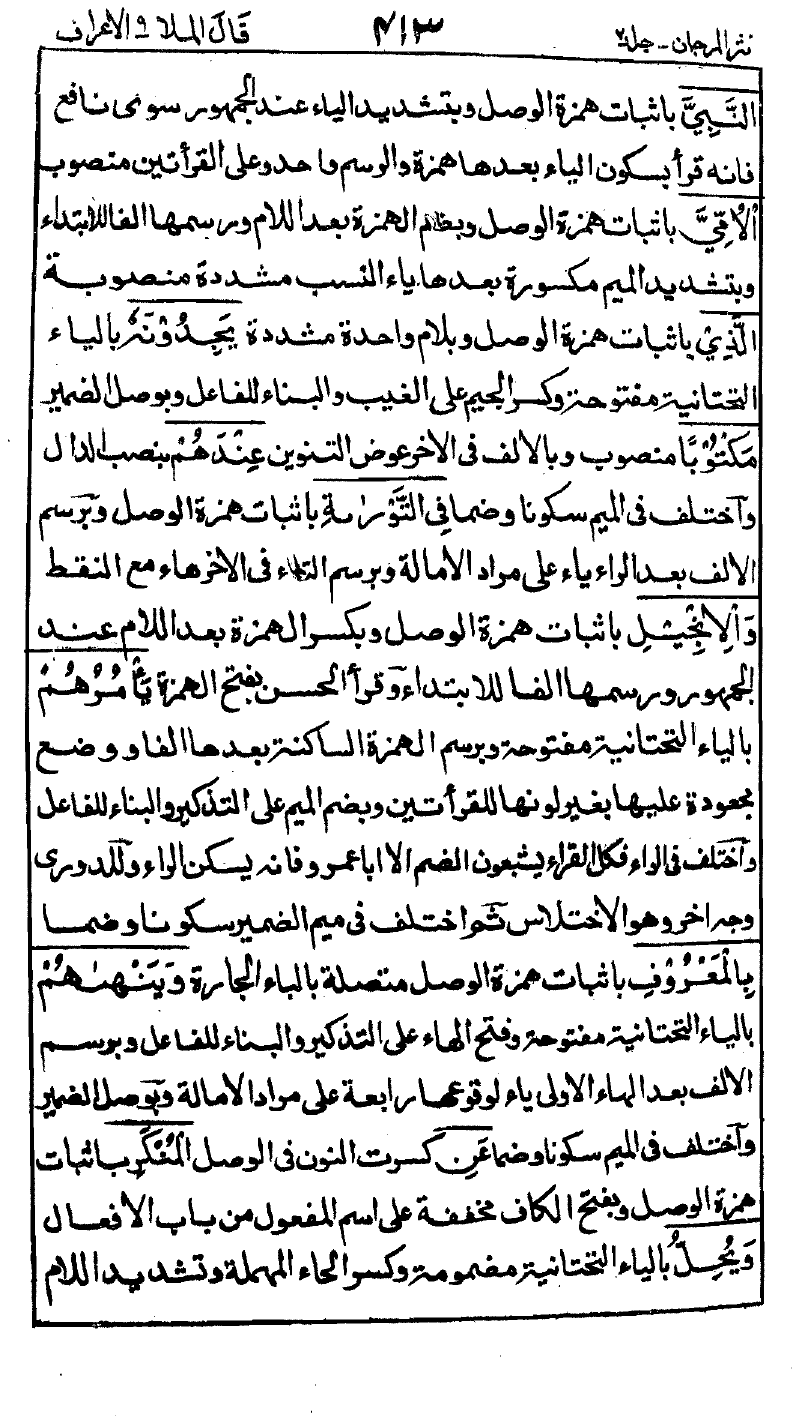 نثر المرجان - جلد ٢ ٤١٣ قال الملا ٩ الاعراف
النَّبِيَّ باثبات همزة الوصل وبتشديد الياء عند الجمهور سوى نافع
فانه قرأ بسكون الياء بعدها همزة والرسم واحد وعلى القرأتين منصوب
الْأُمِّيَّ باثبات همزة الوصل وبضم الهمزة بعد اللام ورسمها الفا للابتداء
وبتشديد الميم مكسورة بعدها ياء النسب مشددة منصوبة
الَّذِيْ باثبات همزة الوصل وبلام واحدة مشددة يَجِدُوْنَهٗ بالياء
التحتانية مفتوحة وكسر الجيم على الغيب والبناء للفاعل وبوصل الضمير
مَكْتُوْبًا منصوب وبالالف فى الاخر عوض التنوين عِنْدَهُمْ بنصب الدال
واختلف فى الميم سكونا وضما فِي التَّوْرٰىةِ باثبات همزة الوصل وبرسم
الالف بعد الراء ياء على مراد الامالة وبرسم التاء فى الاخر هاء مع النقط
وَالْاِنْجِيْلِ باثبات همزة الوصل وبكسر الهمزة بعد اللام عند
الجمهور ورسمها الفا للابتداء وقرأ الحسن بفتح الهمزة يَأْمُرُهُمْ
بالياء التحتانية مفتوحة وبرسم الهمزة الساكنة بعدها الفا ووضع
مجعودة عليها بغير لونها للقرأتين وبضم الميم على التذكير والبناء للفاعل
واختلف فى الراء فكل القراء يشبعون الضم الا ابا عمرو فانه يسكن الراء وللدورى
وجه اخر وهو الاختلاس ثم اختلف فى ميم الضمير سكونا وضما
بِالْمَعْرُوْفِ باثبات همزة الوصل متصلة بالباء الجارة وَيَنْهٰىهُمْ
بالياء التحتانية مفتوحة وفتح الهاء على التذكير والبناء للفاعل وبرسم
الالف بعد الهاء الاولى ياء لوقوعها رابعة على مراد الامالة وبوصل الضمير
واختلف فى الميم سكونا وضما عَنِ كسرت النون فى الوصل الْمُنْكَرِ باثبات
همزة الوصل وبفتح الكاف مخففة على اسم المفعول من باب الافعال
وَيُحِلُّ بالياء التحتانية مضمومة وكسر الحاء المهملة وتشديد اللام